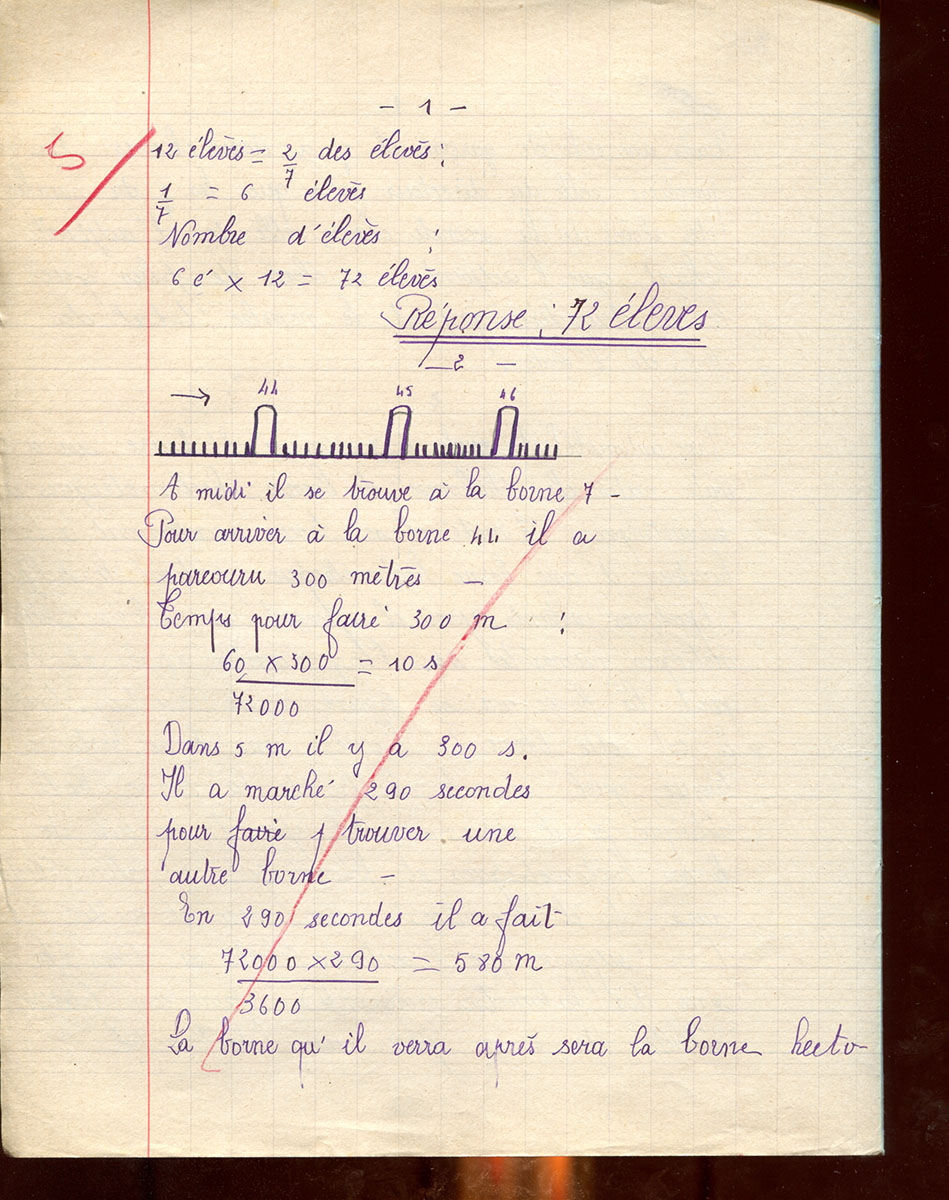 - 1 -
5
12 élevès = 2/7 des élevès :
1/7 = 6 élevès
Nombre d'élevès :
6 é x 12 = 72 élevès
Réponse : 72 éleves
— 2 —
44 45 46
A midi il se trouve à la borne 7 -
Pour arriver à la borne 44 il a
parcouru 300 métrès —
Temps pour fairé 300 m :
60 x 300 = 10 s
72000
Dans 5 m il y a 300 s.
Il a marché 290 secondes
pour fairé trouver une
autre borne —
En 290 secondes il a fait
72000 x 290 = 580 m
3600
La borne qu'il verra aprés sera la borne hecto